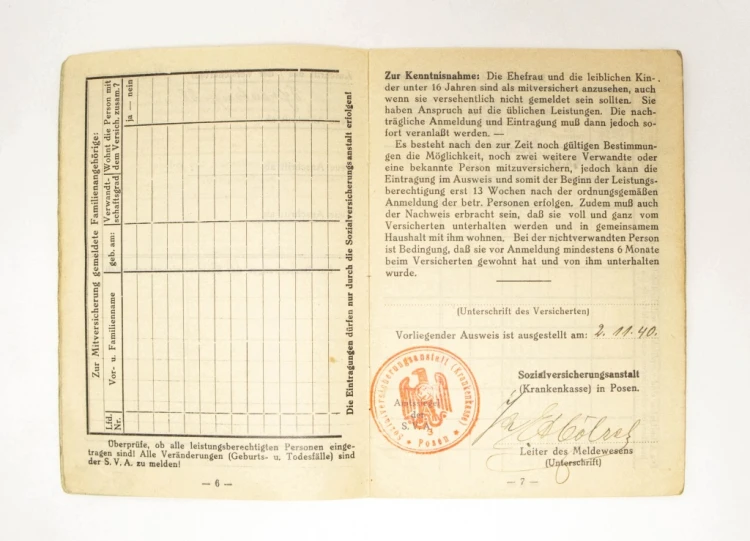 Zur Mitversicherung gemeldete Familienangehörige:
Lfd. Nr.
Vor- u. Familienname
geb. am:
Verwandt-
schaftsgrad
Wohnt die Person mit
dem Versich. zusam.?
ja — nein
Die Eintragungen dürfen nur durch die Sozialversicherungsanstalt erfolgen!
Überprüfe, ob alle leistungsberechtigten Personen einge-
tragen sind! Alle Veränderungen (Geburts- u. Todesfälle) sind
der S. V. A. zu melden!
— 6 —
Zur Kenntnisnahme: Die Ehefrau und die leiblichen Kin-
der unter 16 Jahren sind als mitversichert anzusehen, auch
wenn sie versehentlich nicht gemeldet sein sollten. Sie
haben Anspruch auf die üblichen Leistungen. Die nach-
trägliche Anmeldung und Eintragung muß dann jedoch so-
fort veranlaßt werden. —
Es besteht nach den zur Zeit noch gültigen Bestimmun-
gen die Möglichkeit, noch zwei weitere Verwandte oder
eine bekannte Person mitzuversichern, jedoch kann die
Eintragung im Ausweis und somit der Beginn der Leistungs-
berechtigung erst 13 Wochen nach der ordnungsgemäßen
Anmeldung der betr. Personen erfolgen. Zudem muß auch
der Nachweis erbracht sein, daß sie voll und ganz vom
Versicherten unterhalten werden und in gemeinsamem
Haushalt mit ihm wohnen. Bei der nichtverwandten Person
ist Bedingung, daß sie vor Anmeldung mindestens 6 Monate
beim Versicherten gewohnt hat und von ihm unterhalten
wurde.
(Unterschrift des Versicherten)
Vorliegender Ausweis ist ausgestellt am: 2. 11. 40.
Sozialversicherungsanstalt (Krankenkasse)
Posen
der
S. V. A.
Sozialversicherungsanstalt
(Krankenkasse) in Posen.
Leiter des Meldewesens
(Unterschrift)
— 7 —